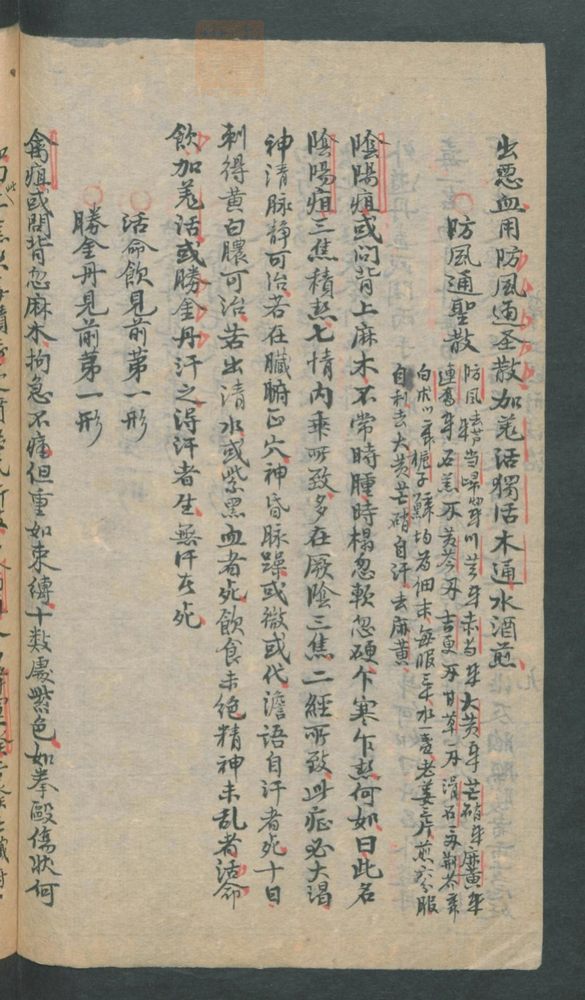 出惡血用防風通圣散加羌活獨活木通水酒煎
防風通聖散
防風 去芦 当歸 川芎 赤芍 大黄 芒硝 麻黄
連翹 石羔 黄芩 吉更 甘草 滑石 荆芥
白朮 栀子 均為細末每服三水一盏老姜三片煎六分服
自利去大黄芒硝自汗去麻黄
陰陽疽或问背上麻木不常時腫時榻忽軟忽硬乍寒乍热何如曰此名
陰陽疽三焦積热七情内乘所致多在厥陰三焦二經所致此症必大渴
神清脉静可治若在臟腑正穴神昏脉躁或微或代澹語自汗者死十日
刺得黄白膿可治若出清水或紫黑血者死飲食未绝精神未乱者活命
飲加羌活或勝金丹汗之得汗者生無汗者死
活命飲見前第一形
勝金丹見前第一形
禽疽或問背忽麻木拘急不痛但重如束縛十数處紫色如拳毆傷狀何